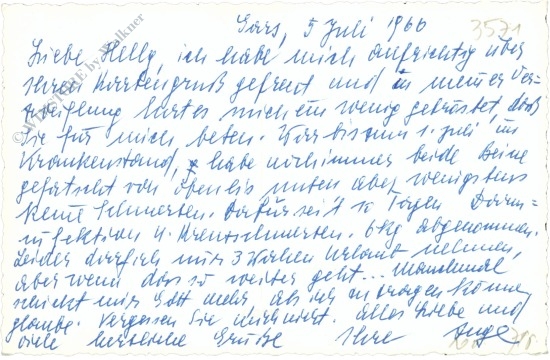 Gars, 5 Juli 1960
3571
Liebe Helly, ich habe mich aufrichtig über
Ihren Kartengruß gefreut und in meiner Ver-
zweiflung hat es mich ein wenig getröstet, daß
Sie für mich beten. War bis zum 1. Juli im
Krankenstand, habe noch immer beide Beine
gefatscht von oben bis unten aber wenigstens
keine Schmerzen. Dafür seit 10 Tagen Darm-
infektion u. Kreuzschmerzen. 6 kg abgenommen.
Leider darf ich nur 3 Wochen Urlaub nehmen,
aber wenn das so weiter geht... Manchmal
schickt mir Gott mehr als ich ertragen könne
glaube. Vergessen Sie mich nicht. Alles Liebe und
viele herzliche Grüße Ihre Inge
© WIZSTORE by Walkner